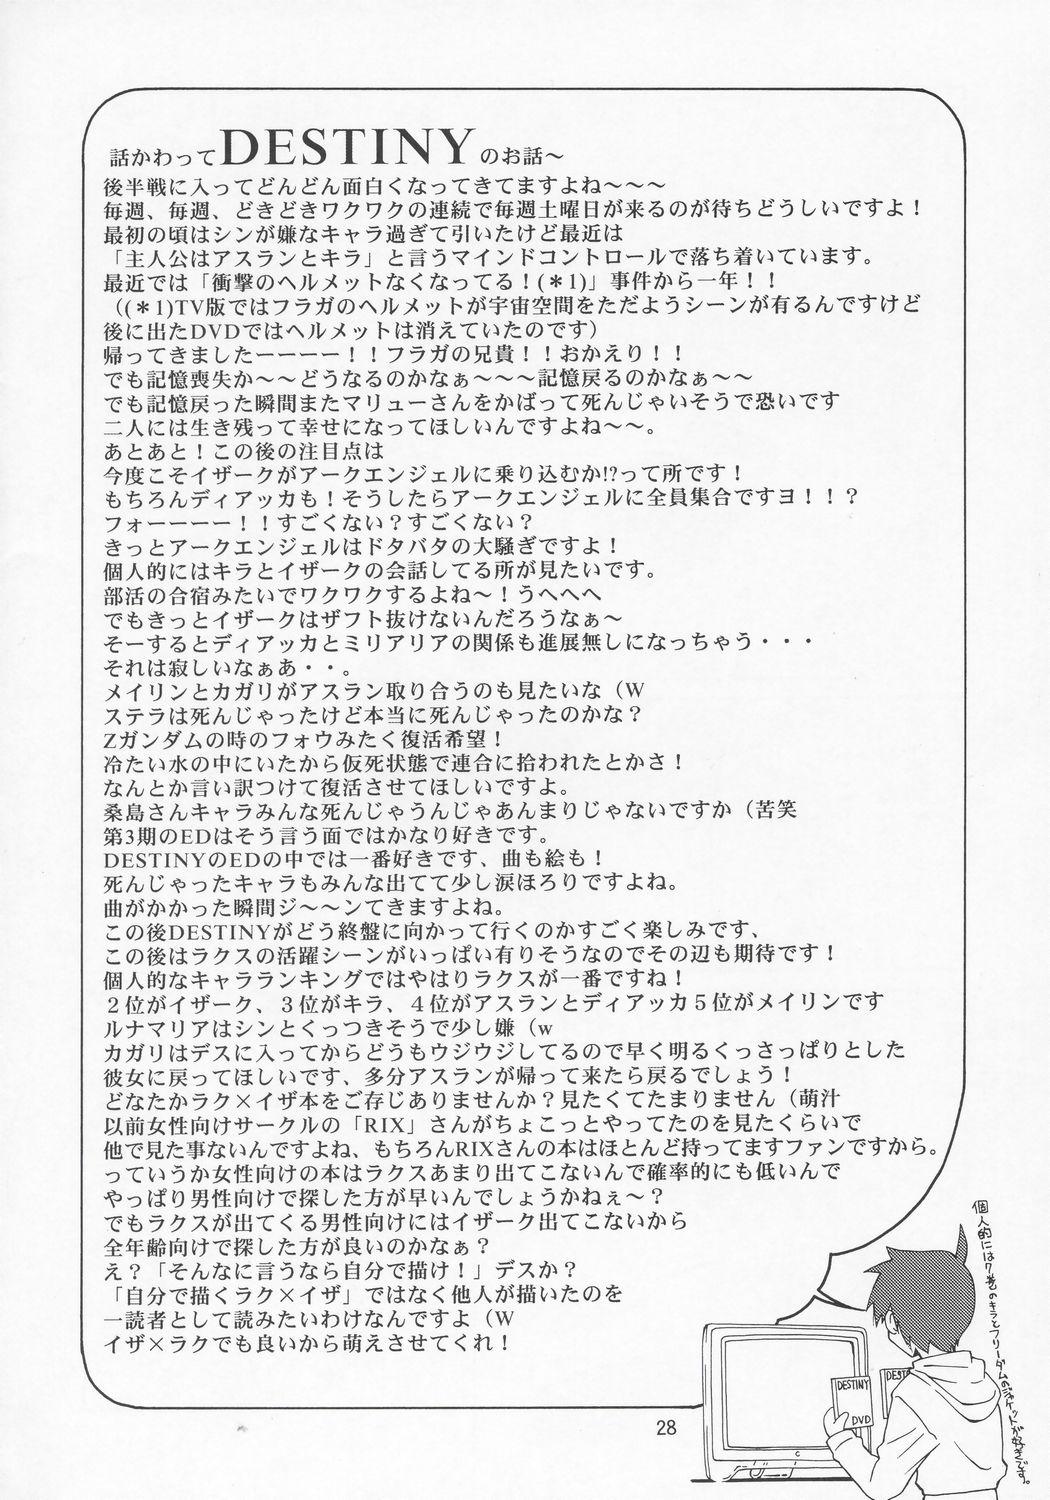 話かわってDESTINYのお話～
後半戦に入ってどんどん面白くなってきてますよね～～～
毎週、毎週、どきどきワクワクの連続で毎週土曜日が来るのが待ちどうしいですよ！
最初の頃はシンが嫌なキャラ過ぎて引いたけど最近は
「主人公はアスランとキラ」と言うマインドコントロールで落ち着いています。
最近では「衝撃のヘルメットなくなってる！(＊1)」事件から一年！！
（(＊1)TV版ではフラガのヘルメットが宇宙空間をただようシーンが有るんですけど
後に出たDVDではヘルメットは消えていたのです）
帰ってきましたーーーー！！フラガの兄貴！！おかえり！！
でも記憶喪失か～～どうなるのかなぁ～～～記憶戻るのかなぁ～～
でも記憶戻った瞬間またマリューさんをかばって死んじゃいそうで恐いです
二人には生き残って幸せになってほしいんですよね～～。
あとあと！この後の注目点は
今度こそイザークがアークエンジェルに乗り込むか!?って所です！
もちろんディアッカも！そうしたらアークエンジェルに全員集合ですヨ！！？
フォーーーー！！すごくない？すごくない？
きっとアークエンジェルはドタバタの大騒ぎですよ！
個人的にはキラとイザークの会話してる所が見たいです。
部活の合宿みたいでワクワクするよね～！うへへへ
でもきっとイザークはザフト抜けないんだろうなぁ～
そーするとディアッカとミリアリアの関係も進展無しになっちゃう・・・
それは寂しいなぁあ・・。
メイリンとカガリがアスラン取り合うのも見たいな（W
ステラは死んじゃったけど本当に死んじゃったのかな？
Zガンダムの時のフォウみたく復活希望！
冷たい水の中にいたから仮死状態で連合に拾われたとかさ！
なんとか言い訳つけて復活させてほしいですよ。
桑島さんキャラみんな死んじゃうんじゃあんまりじゃないですか（苦笑
第3期のEDはそう言う面ではかなり好きです。
DESTINYのEDの中では一番好きです、曲も絵も！
死んじゃったキャラもみんな出てて少し涙ほろりですよね。
曲がかかった瞬間ジ～～ンてきますよね。
この後DESTINYがどう終盤に向かって行くのかすごく楽しみです、
この後はラクスの活躍シーンがいっぱい有りそうなのでその辺も期待です！
個人的なキャラランキングではやはりラクスが一番ですね！
２位がイザーク、３位がキラ、４位がアスランとディアッカ５位がメイリンです
ルナマリアはシンとくっつきそうで少し嫌（w
カガリはデスに入ってからどうもウジウジしてるので早く明るくっさっぱりとした
彼女に戻ってほしいです、多分アスランが帰って来たら戻るでしょう！
どなたかラク×イザ本をご存じありませんか？見たくてたまりません（萌汁
以前女性向けサークルの「RIX」さんがちょこっとやってたのを見たくらいで
他で見た事ないんですよね、もちろんRIXさんの本はほとんど持ってますファンですから。
っていうか女性向けの本はラクスあまり出てこないんで確率的にも低いんで
やっぱり男性向けで探した方が早いんでしょうかねぇ～？
でもラクスが出てくる男性向けにはイザーク出てこないから
全年齢向けで探した方が良いのかなぁ？
え？「そんなに言うなら自分で描け！」デスか？
「自分で描くラク×イザ」ではなく他人が描いたのを
一読者として読みたいわけなんですよ（W
イザ×ラクでも良いから萌えさせてくれ！
個人的には7巻のキラとフリーダムのジャケットが好きです。
DESTINY
DVD
DEST
28